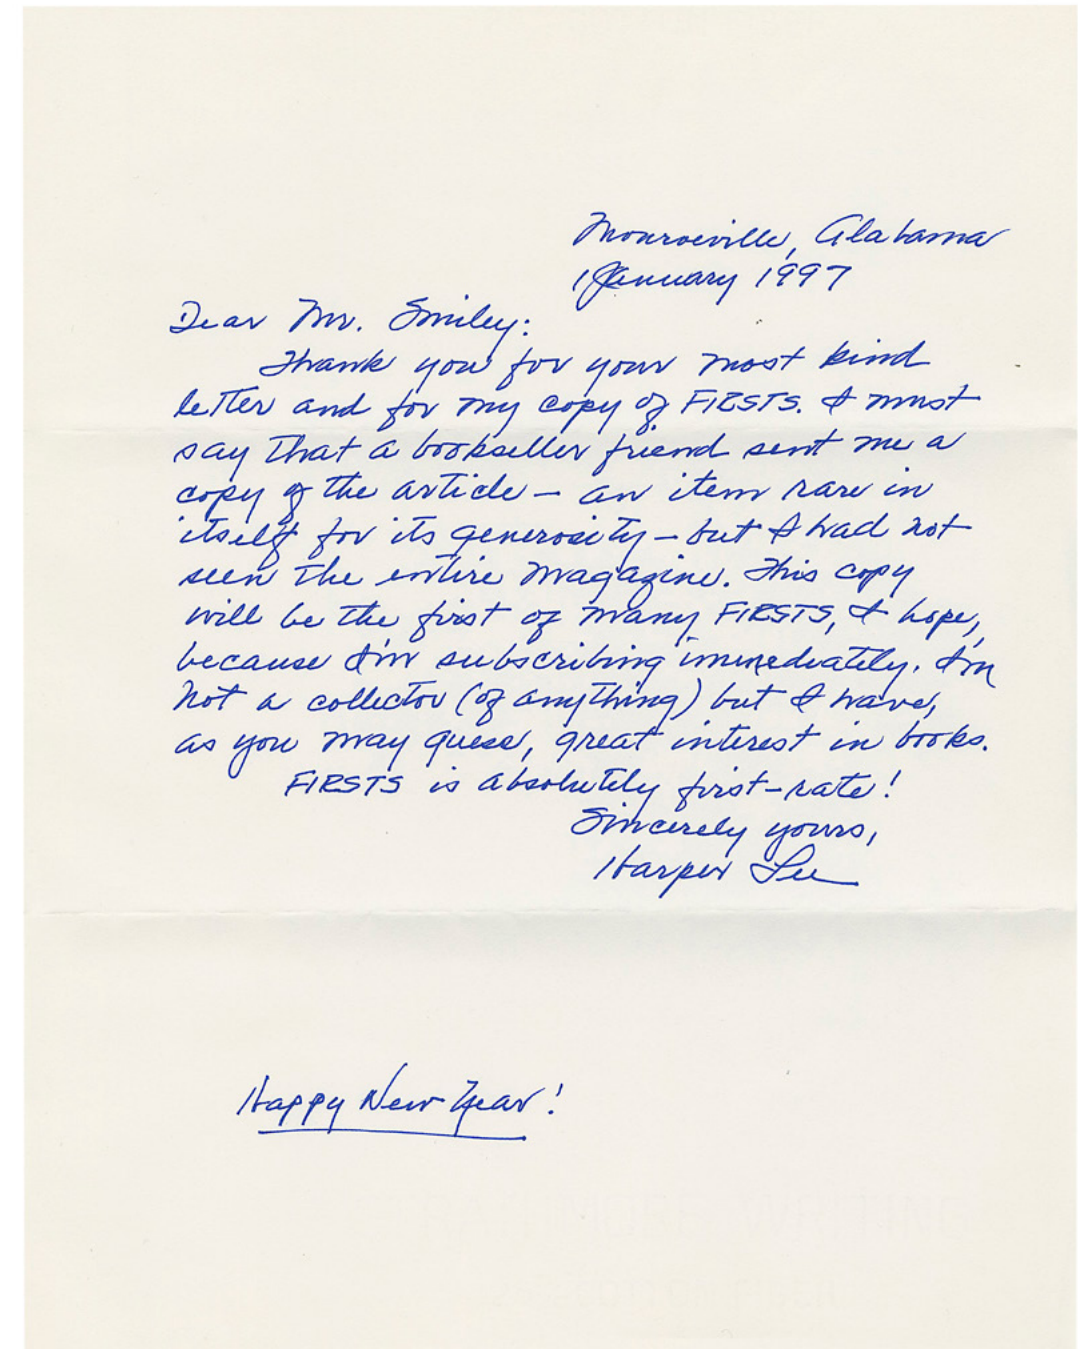 Monroeville, Alabama
1 January 1997
Dear Mr. Smiley:
Thank you for your most kind
letter and for my copy of FIRSTS. I must
say that a bookseller friend sent me a
copy of the article — an item rare in
itself for its generosity — but I had not
seen the entire magazine. This copy
will be the first of many FIRSTS, I hope,
because I'm subscribing immediately. I'm
not a collector (of anything) but I have,
as you may guess, great interest in books.
FIRSTS is absolutely first-rate!
Sincerely yours,
Harper Lee
Happy New Year!